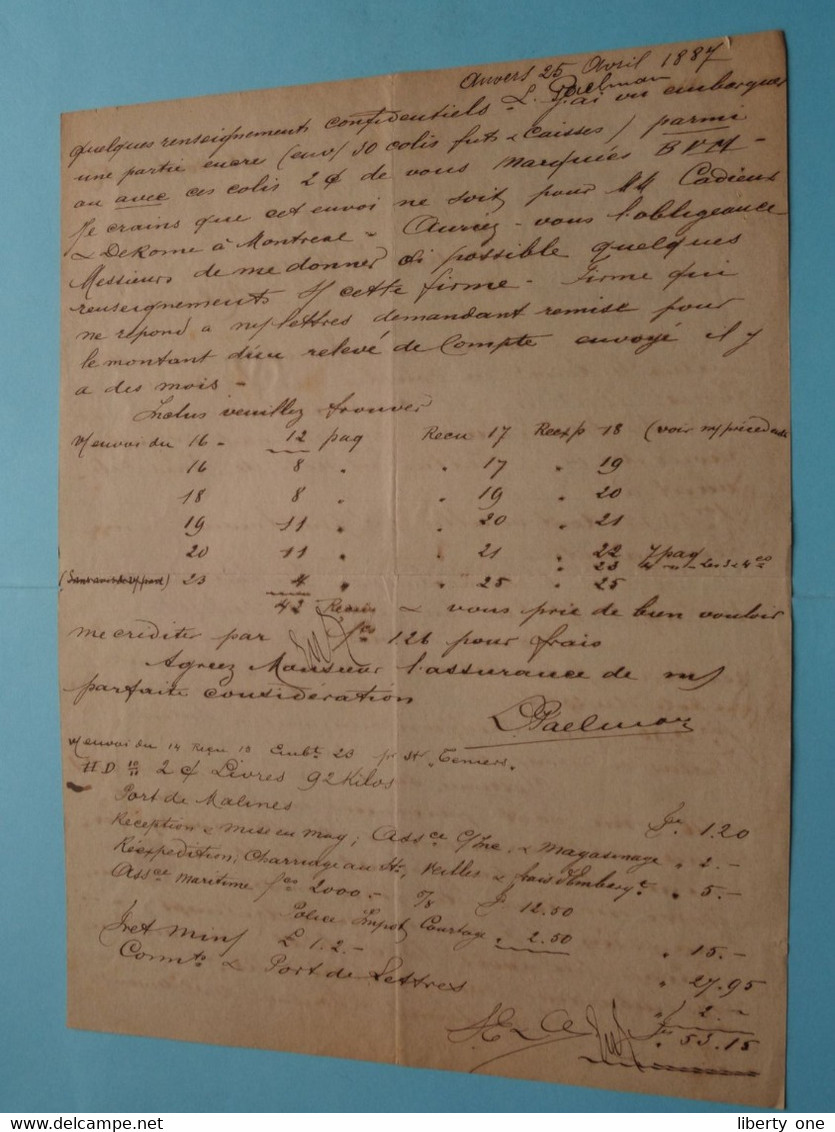 Anvers 25 Avril 1887
quelques renseignements confidentiels L. Paelman
J'ai vu embarquer
une partie encre (env/ 30 colis futs & caisses) parmi
ou avec ces colis 2 ¢ de vous marqués BVM -
Je crains que cet envoi ne soit pour MM Cadieux
& Dekome à Montreal - Auriez-vous l'obligeance
Messieurs de me donner si possible quelques
renseignements s/ cette firme - Firme qui
ne repond a n/lettres demandant remise pour
le montant d'un relevé de Compte envoyé il y
a des mois -
Inclus veuillez trouver
v/envoi du 16 - 12 paq Recu 17 Reexp 18 (voir n/précédente
16 8 " " 17 " 19
18 8 " " 19 " 20
19 11 " " 20 " 21
20 11 " " 21 " 22 7 paq
" 23 4
23 4 " " 25 " 25
42 & vous prie de bien vouloir
me crediter par fcs 126 pour frais
Agreez Monsieur l'assurance de m/
parfaite considération
L Paelman
v/envoi du 14 Recu 18 Embt 23 pr Str "Teniers"
HD 10/11 2 ¢ Livres 92 Kilos
Port de Malines Frs 1.20
Réception & mise en mag, Assce c/Inc & Magasinage " 2.-
Réexpedition, Charriage au Str, & frais d'Embargt " 5.-
Assce maritime fcs 2000.- F 12.50
Police Impot Courtage " 2.50
" 15.-
Fret Minf £ 1.2.- " 27.95
Connts & Port de Lettres " 2.-
Frs 53.15
liberty one